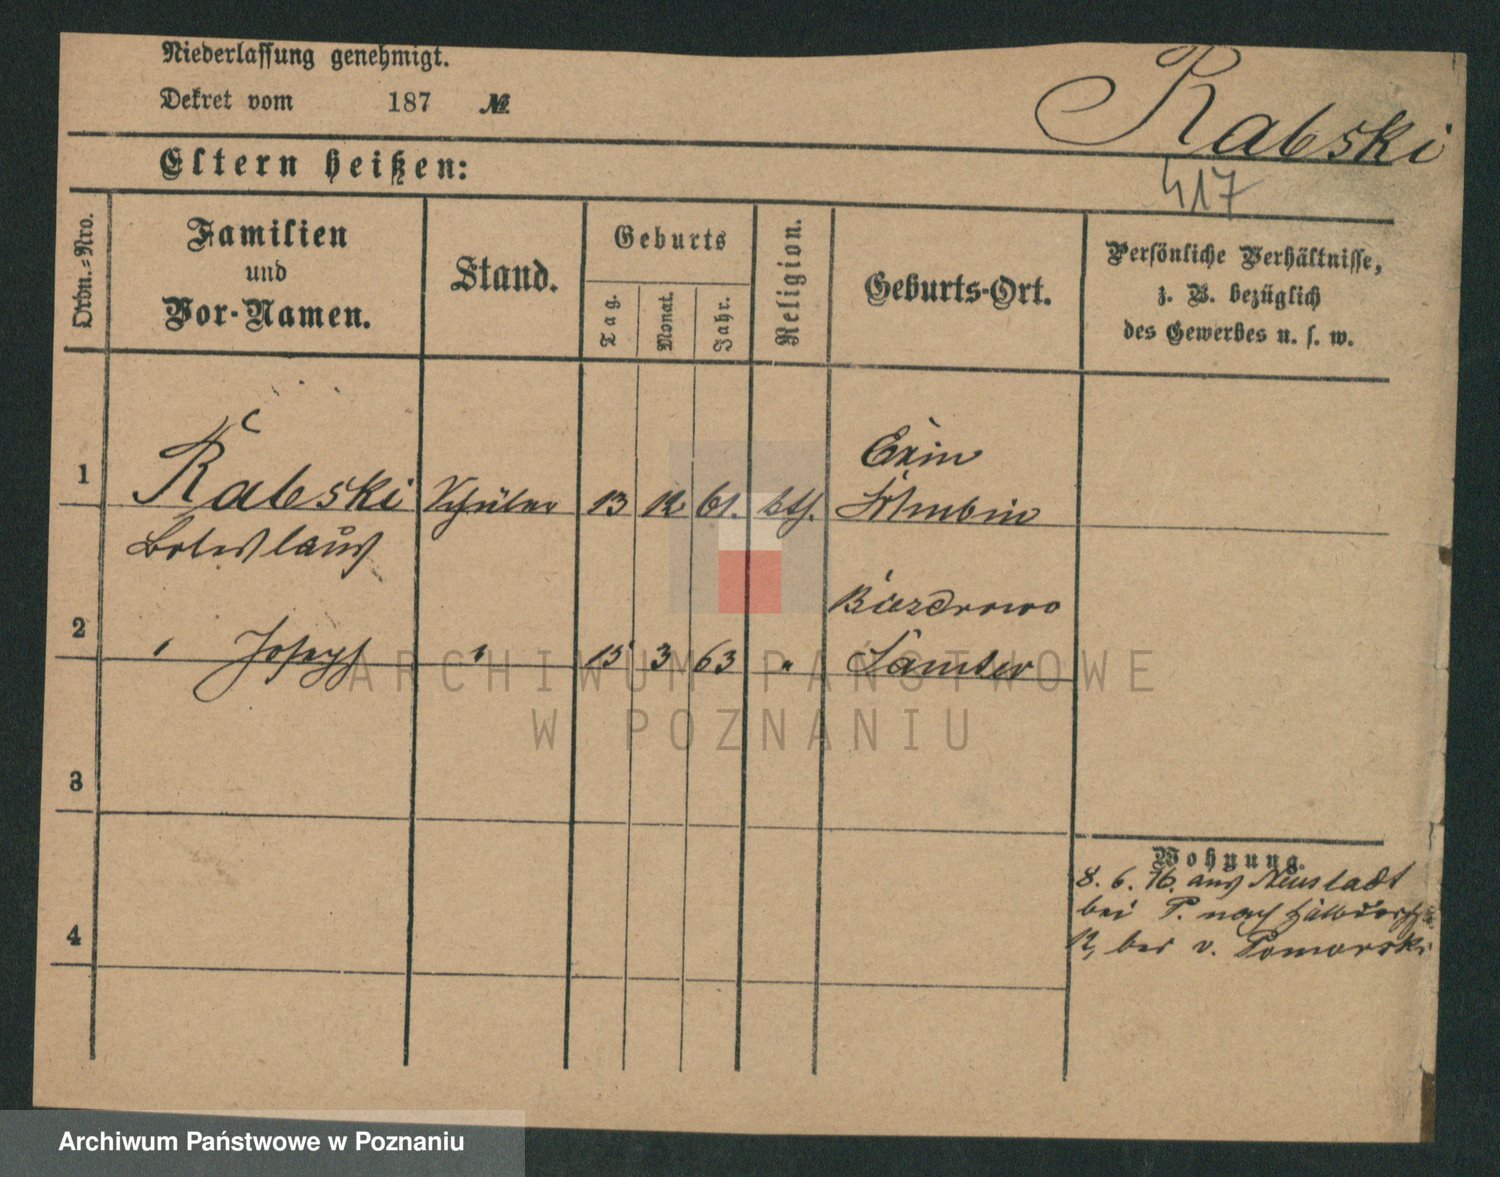 Niederlassung genehmigt.
Dekret vom 187 №
Rabski
417
Eltern heißen:
Ordn.-Nro.
Familien
und
Vor-Namen.
Stand.
Geburts
Tag.
Monat.
Jahr.
Religion.
Geburts-Ort.
Persönliche Verhältnisse,
z. B. bezüglich
des Gewerbes u. s. w.
Exin
1 Rabski Schüler 13 12 61. kth. Schubin
Boleslaus
Biezdrowo
2 " Joseph " 15 3 63 " Samter
3
4
Wohnung.
8. 6. 76. aus Neustadt
bei P. nach
12, bei v. Pomorski
ARCHIWUM PAŃSTWOWE
W POZNANIU
Archiwum Państwowe w Poznaniu